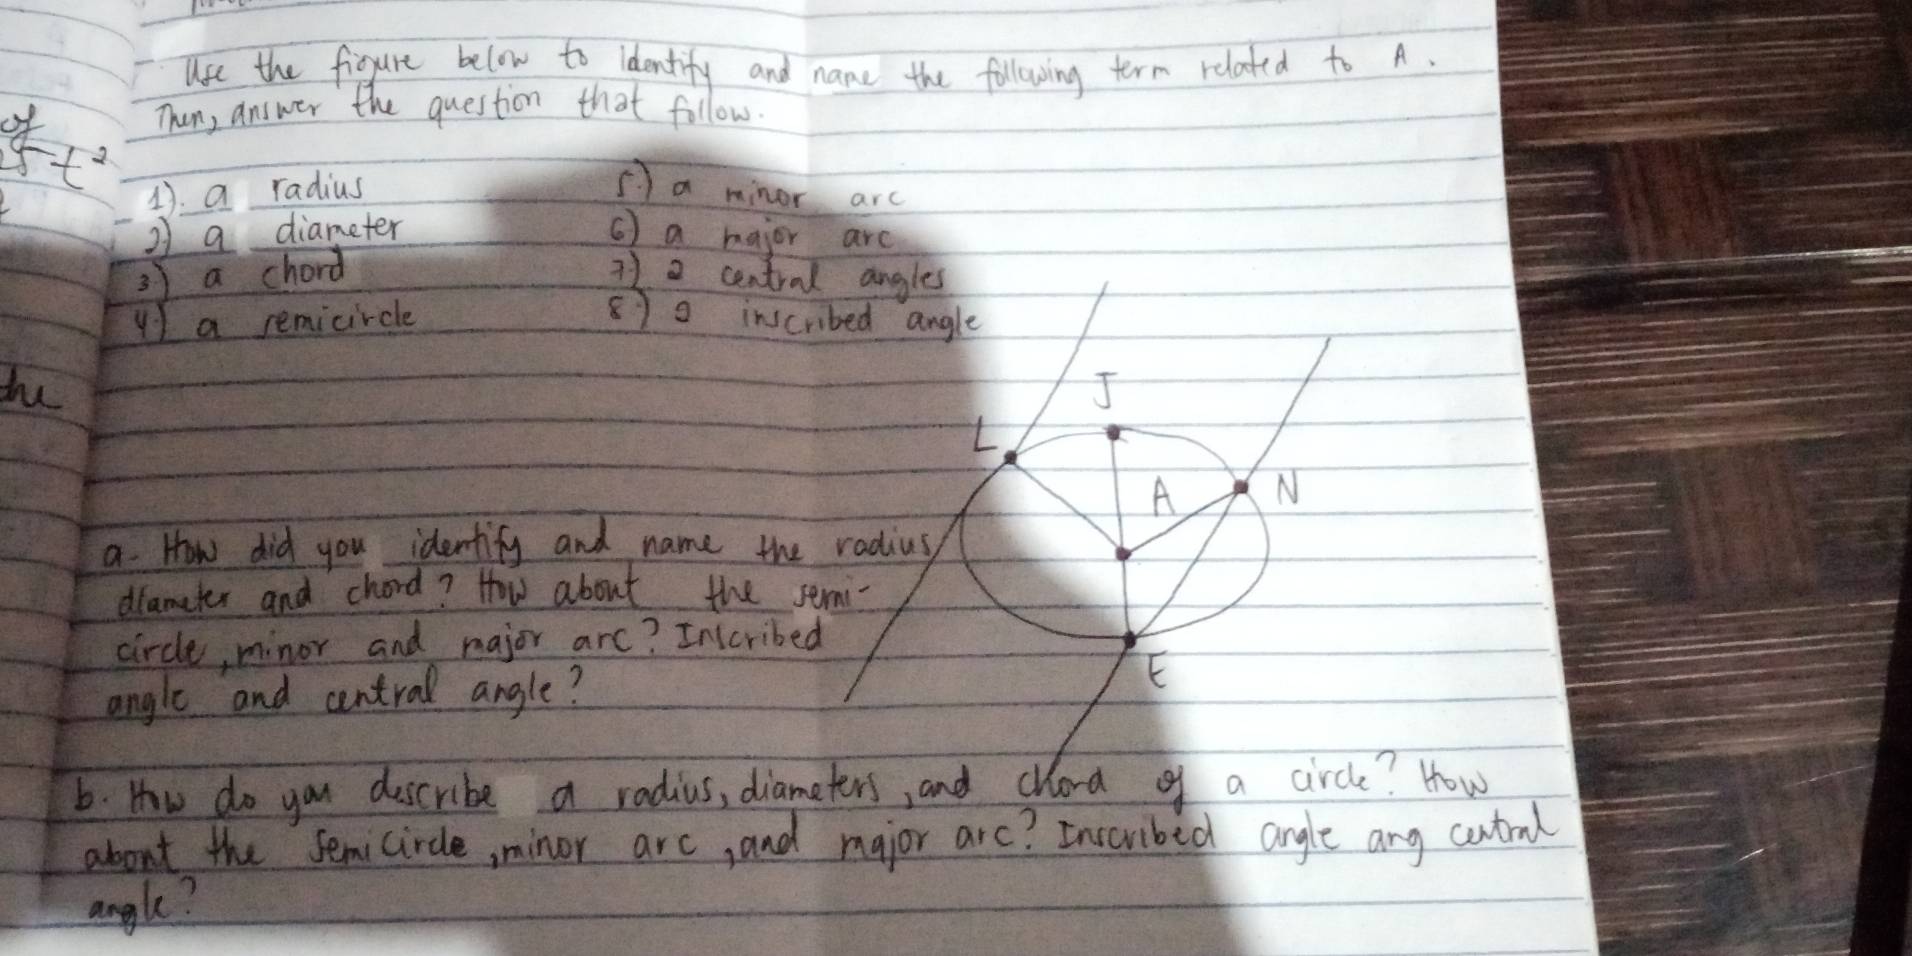 Use the figure below to identify and name the following term related to A.
Then, answer the question that follow.
of
t²
1). a radius
5.) a minor arc
2.) a diameter
6) a major arc
3) a chord
7.) 2 central angles
4.) a semicircle
8.) a inscribed angle
the
J
L
A N
E
a. How did you identify and name the radius,
diameter and chord? How about the semi-
circle, minor and major arc? Inscribed
angle and central angle?
b. How do you describe a radius, diameters, and chord of a circle? How
about the semicircle, minor arc, and major arc? Inscribed angle ang central
angle?